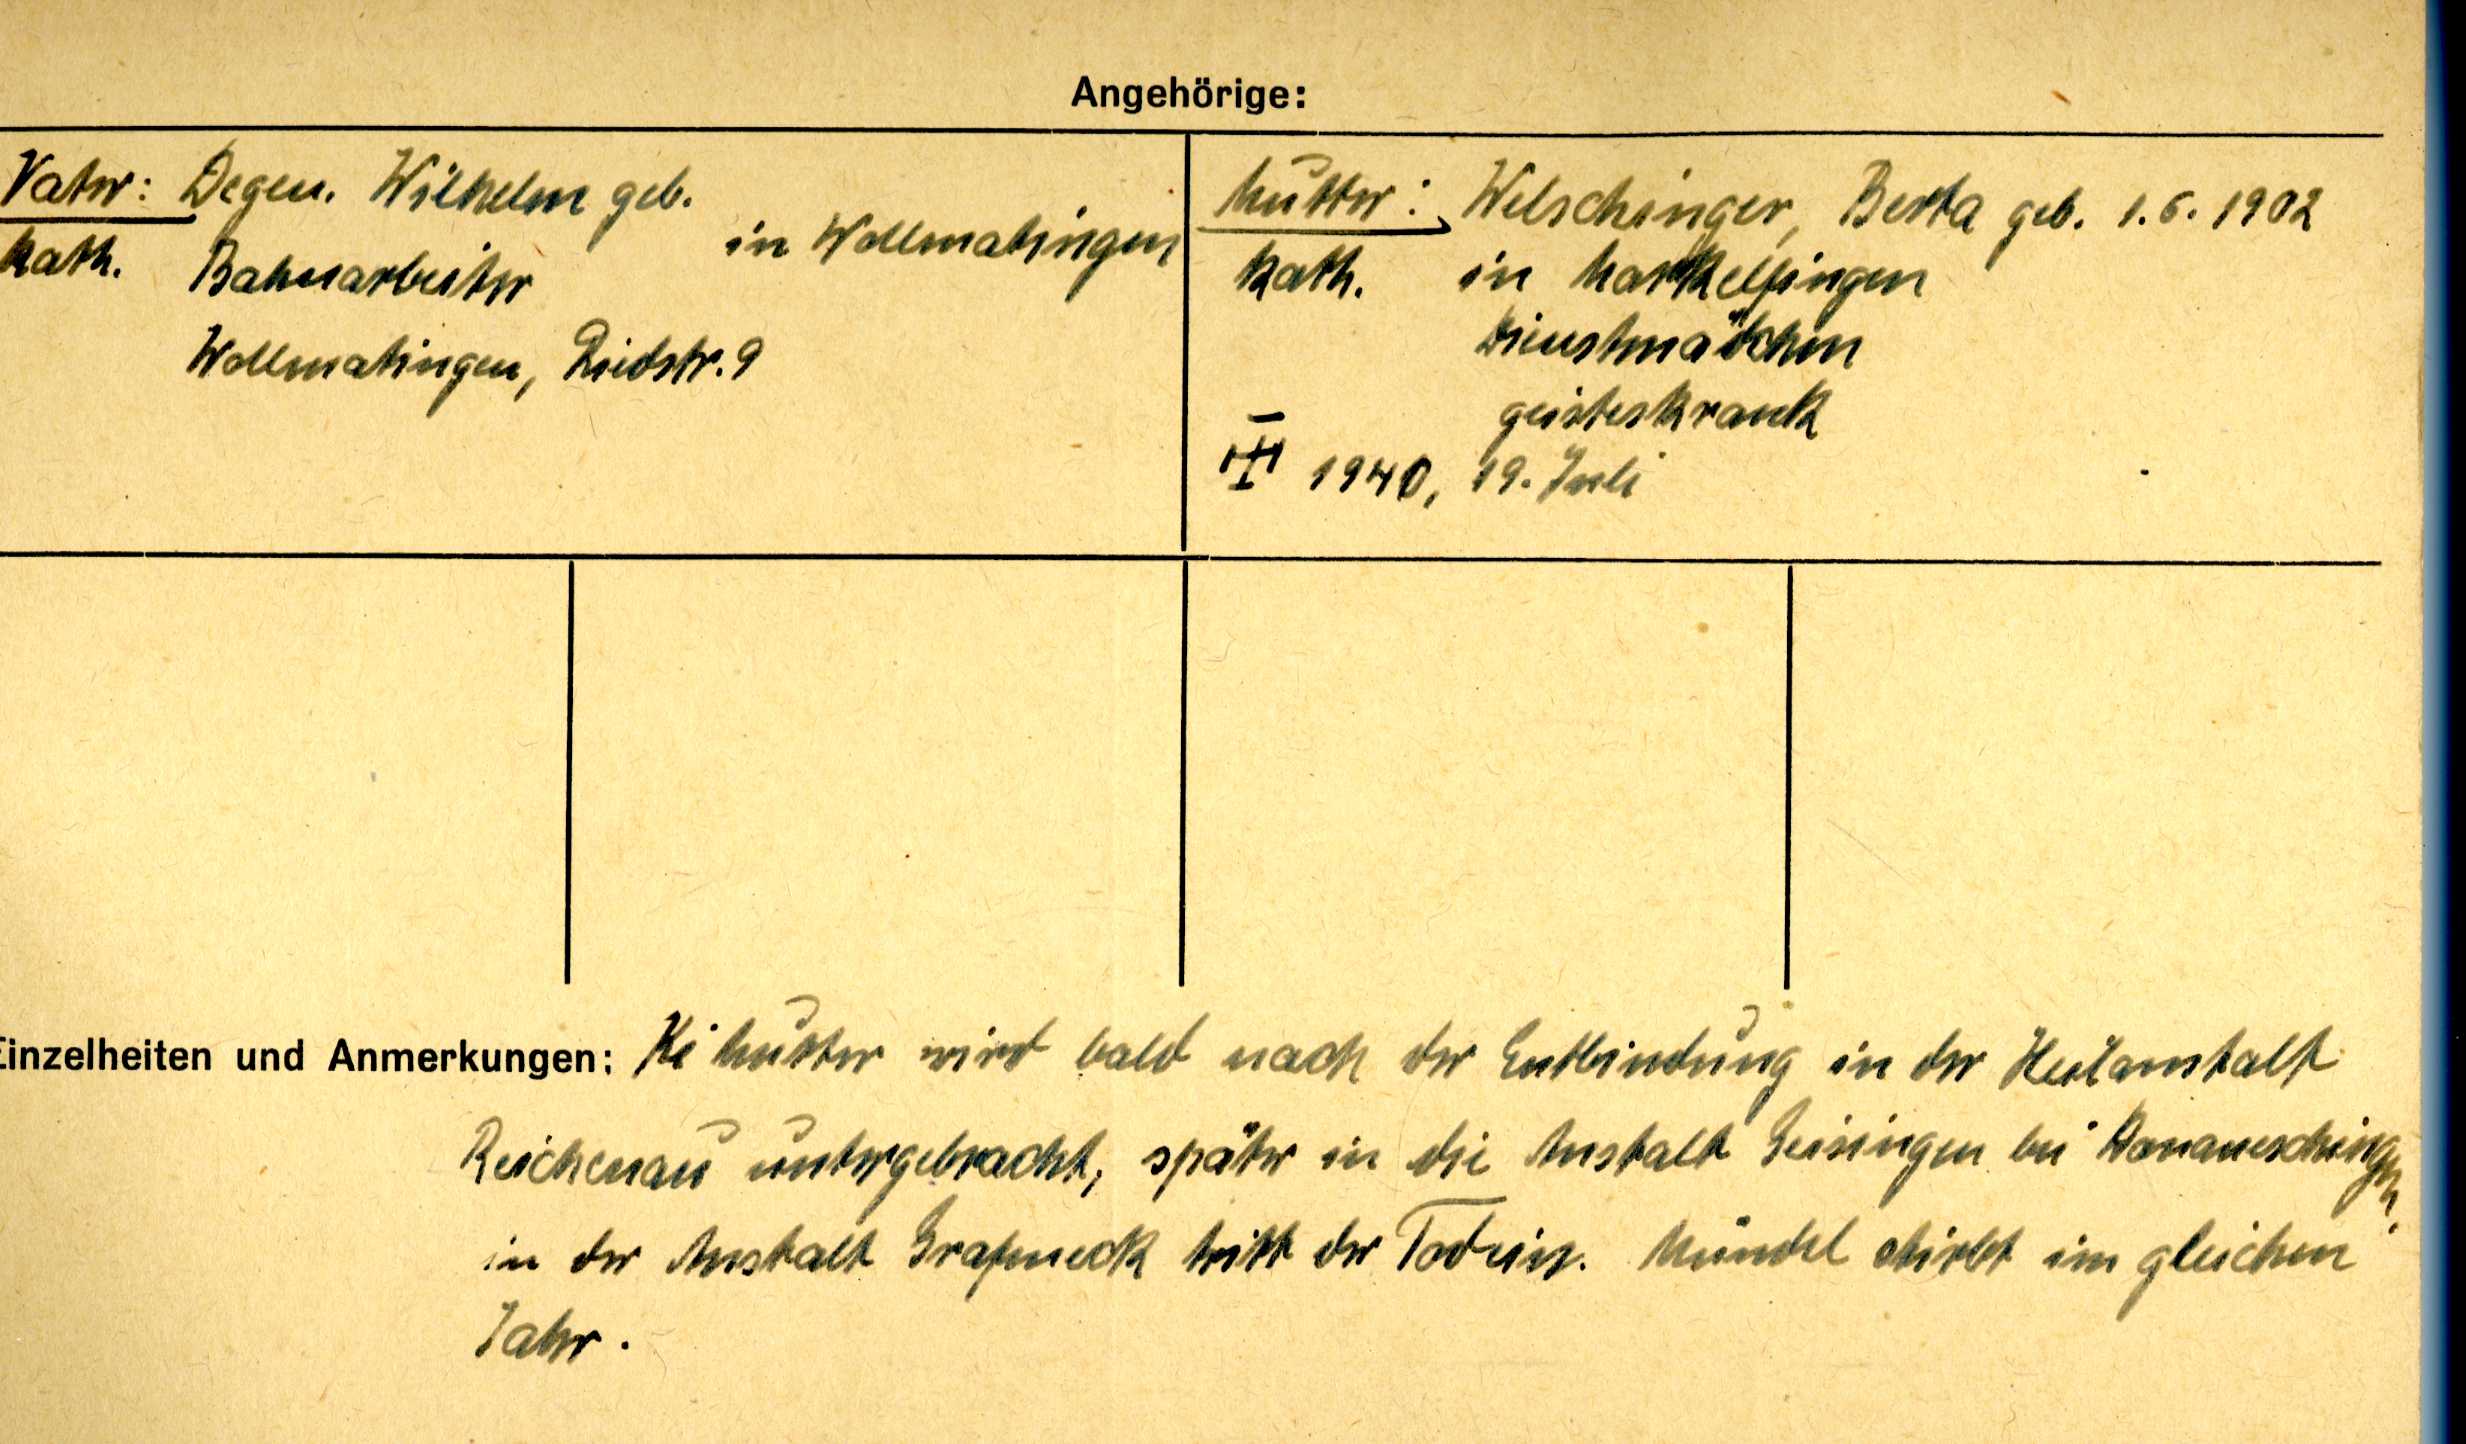 Angehörige:
Vater: Degen. Wilhelm geb.
in Wollmatingen
kath. Bahnarbeiter
Wollmatingen, Riedstr. 9
Mutter: Welschinger, Berta geb. 1.6. 1902
kath. in Markelfingen
Dienstmädchen
geisteskrank
1940, 19. Juli
Einzelheiten und Anmerkungen: Ki Mutter wird bald nach der Entbindung in der Heilanstalt
Reichenau untergebracht, später in die Anstalt Geisingen bei Donaueschingen,
in der Anstalt Grafeneck tritt der Tod ein. Mündel stirbt im gleichen
Jahr.